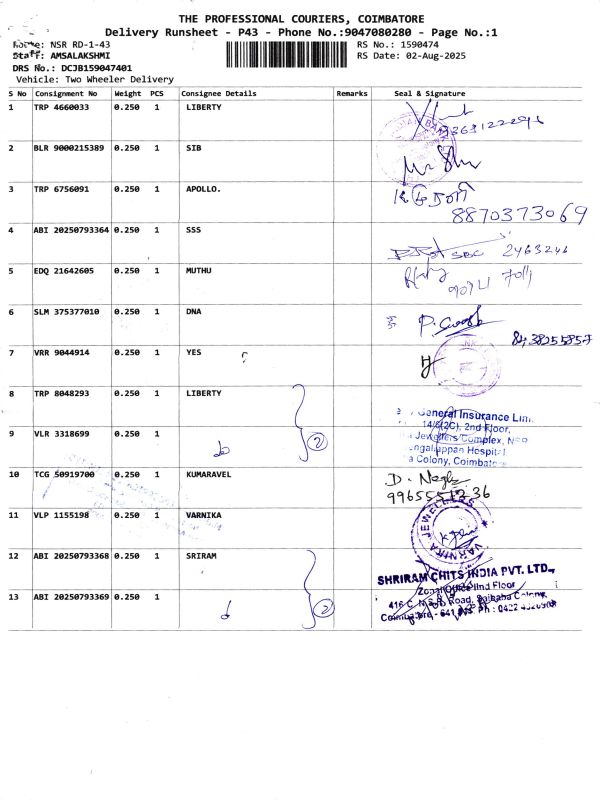 THE PROFESSIONAL COURIERS, COIMBATORE
Delivery Runsheet - P43 - Phone No.:9047080280 - Page No.:1
Route: NSR RD-1-43
RS No.: 1590474
Staff: AMSALAKSHMI
RS Date: 02-Aug-2025
DRS No.: DCJB159047401
Vehicle: Two Wheeler Delivery
S No Consignment No Weight PCS Consignee Details Remarks Seal & Signature
1 TRP 4660033 0.250 1 LIBERTY
2 BLR 9000215389 0.250 1 SIB
3 TRP 6756091 0.250 1 APOLLO.
8870373069
4 ABI 20250793364 0.250 1 SSS
SBC 2463246
5 EDQ 21642605 0.250 1 MUTHU
6 SLM 375377010 0.250 1 DNA
7 VRR 9044914 0.250 1 YES
8 TRP 8048293 0.250 1 LIBERTY
General Insurance
14/6(2C), 2nd Floor,
9 VLR 3318699 0.250 1
2
Jewellers Complex,
Hospital
Colony, Coimbatore
10 TCG 50919700 0.250 1 KUMARAVEL
11 VLP 1155198 0.250 1 VARNIKA
VARNIKA JEWELLERS
12 ABI 20250793368 0.250 1 SRIRAM
SHRIRAM CHITS INDIA PVT. LTD.,
Zonal Office IInd Floor
13 ABI 20250793369 0.250 1
2
416 C, N.S.R. Road, Saibaba Colony,